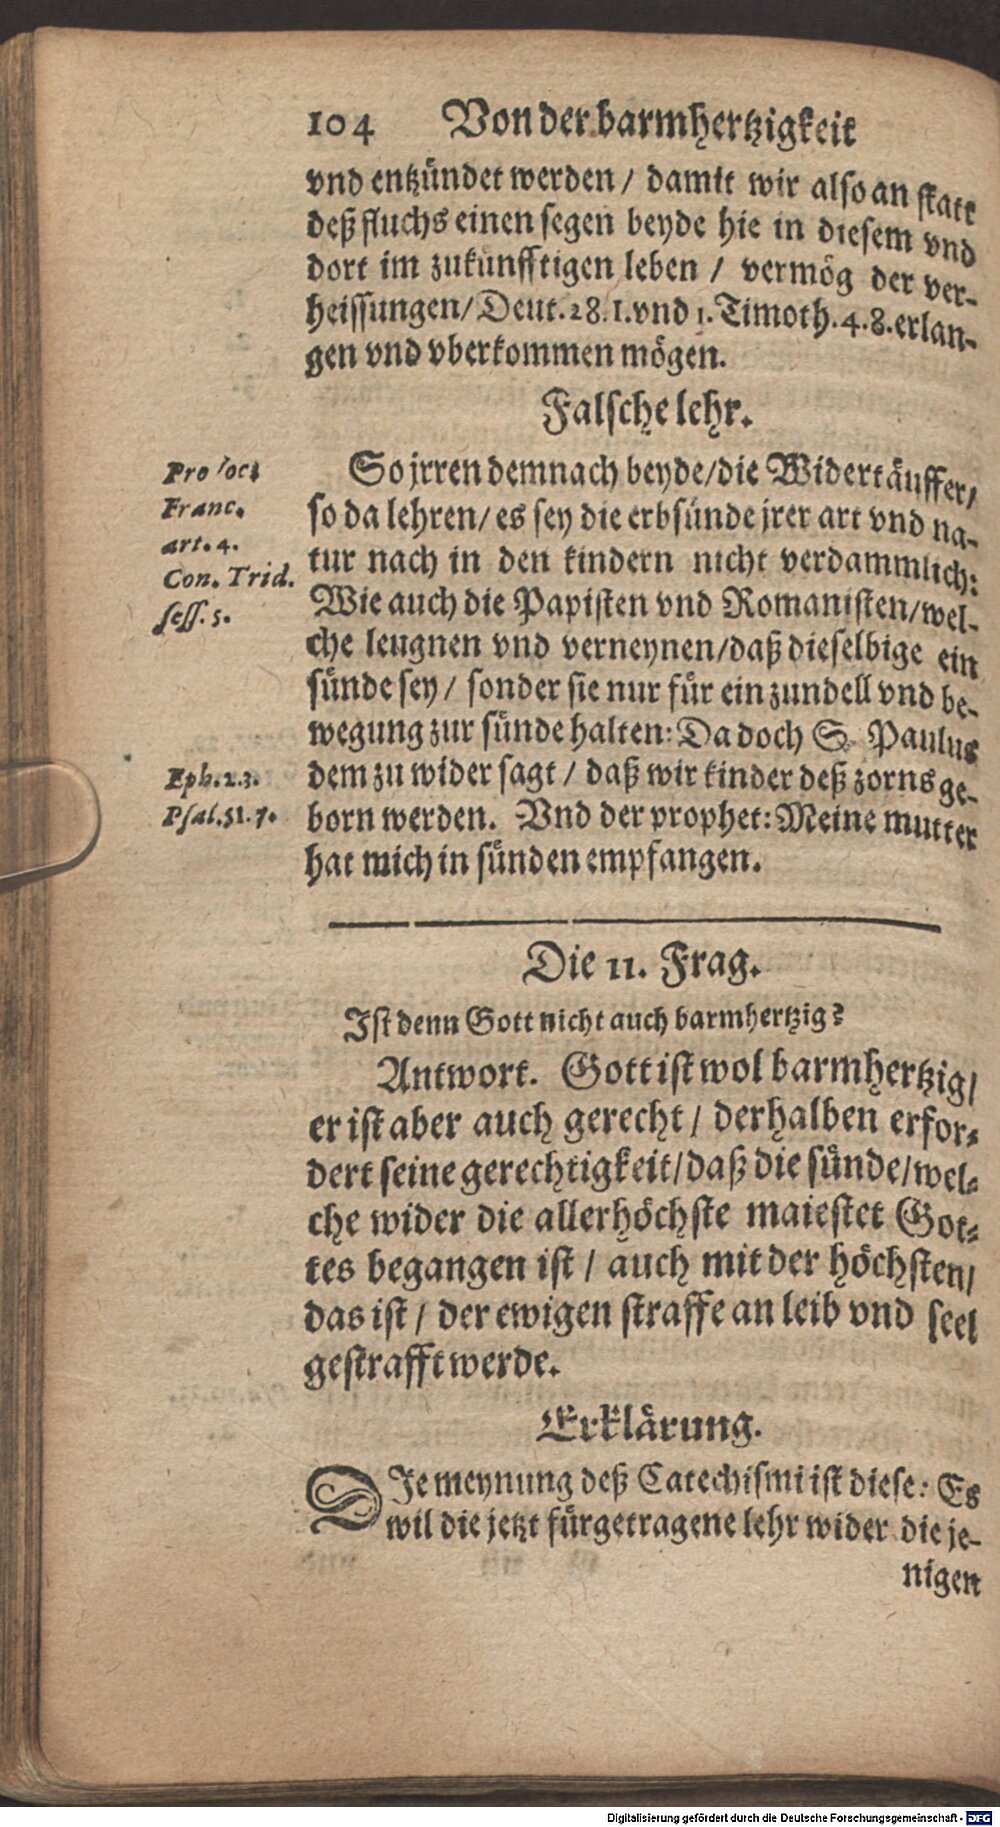 104 Von der barmhertzigkeit
vnd entzündet werden / damit wir also an statt
deß fluchs einen segen beyde hie in diesem vnd
dort im zukünfftigen leben / vermög der ver-
heissungen / Deut. 28. 1. vnd 1. Timoth. 4. 8. erlan-
gen vnd vberkommen mögen.
Falsche lehr.
Protoc.
Franc.
art. 4.
Con. Trid.
sess. 5.
So jrren demnach beyde / die Widertäuffer /
so da lehren / es sey die erbsünde jrer art vnd na-
tur nach in den kindern nicht verdammlich:
Wie auch die Papisten vnd Romanisten / wel-
che leugnen vnd verneynen / daß dieselbige ein
sünde sey / sonder sie nur für ein zundell vnd be-
wegung zur sünde halten: Da doch S. Paulus
dem zu wider sagt / daß wir kinder deß zorns ge-
born werden. Vnd der prophet: Meine mutter
hat mich in sünden empfangen.
Eph. 2. 3.
Psal. 51. 7.
Die 11. Frag.
Ist denn Gott nicht auch barmhertzig?
Antwort. Gott ist wol barmhertzig /
er ist aber auch gerecht / derhalben erfor-
dert seine gerechtigkeit / daß die sünde / wel-
che wider die allerhöchste maiestet Got-
tes begangen ist / auch mit der höchsten /
das ist / der ewigen straffe an leib vnd seel
gestrafft werde.
Erklärung.
DIe meynung deß Catechismi ist diese: Es
wil die jetzt fürgetragene lehr wider die je-
nigen
Digitalisierung gefördert durch die Deutsche Forschungsgemeinschaft - DFG